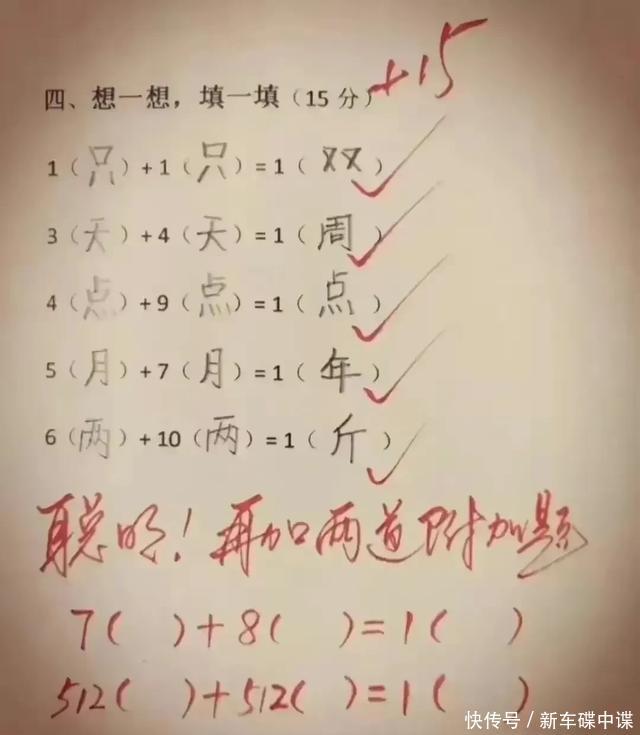 +15
四、想一想，填一填（15 分）
1（只）+1（只）=1（双）
3（天）+4（天）=1（周）
4（点）+9（点）=1（点）
5（月）+7（月）=1（年）
6（两）+10（两）=1（斤）
聪明！再加两道附加题
7( )+8( )=1( )
512( )+512( )=1( )
快传号／新车碟中谍